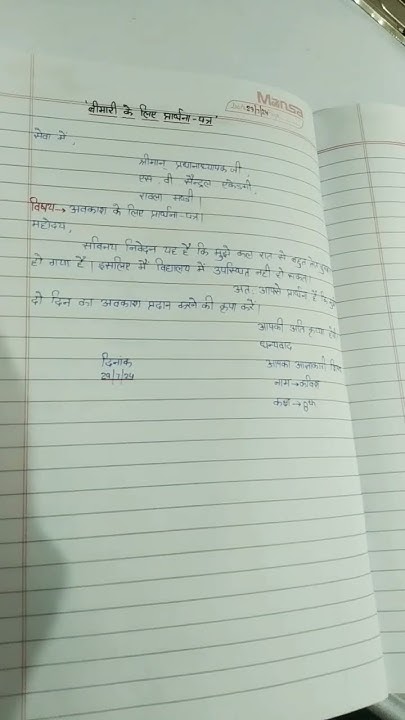 Mansa
29/7/24
'बीमारी के लिए प्रार्थना-पत्र'
सेवा में,
श्रीमान् प्रधानाध्यापक जी,
एस. वी सैन्ट्रल एकेडमी,
रावला मण्डी।
विषय→ अवकाश के लिए प्रार्थना-पत्र।
महोदय,
सविनय निवेदन यह है कि मुझे कल रात से बहुत तेज
हो गया है। इसलिए मैं विद्यालय में उपस्थित नही हो सकता।
अत. आपसे प्रार्थना है कि
दो दिन का अवकाश प्रदान करने की कृपा करें।
आपकी अति कृपा
धन्यवाद
दिनांक
29/7/24
आपका आज्ञाकारी
नाम→कविश
कक्षा→